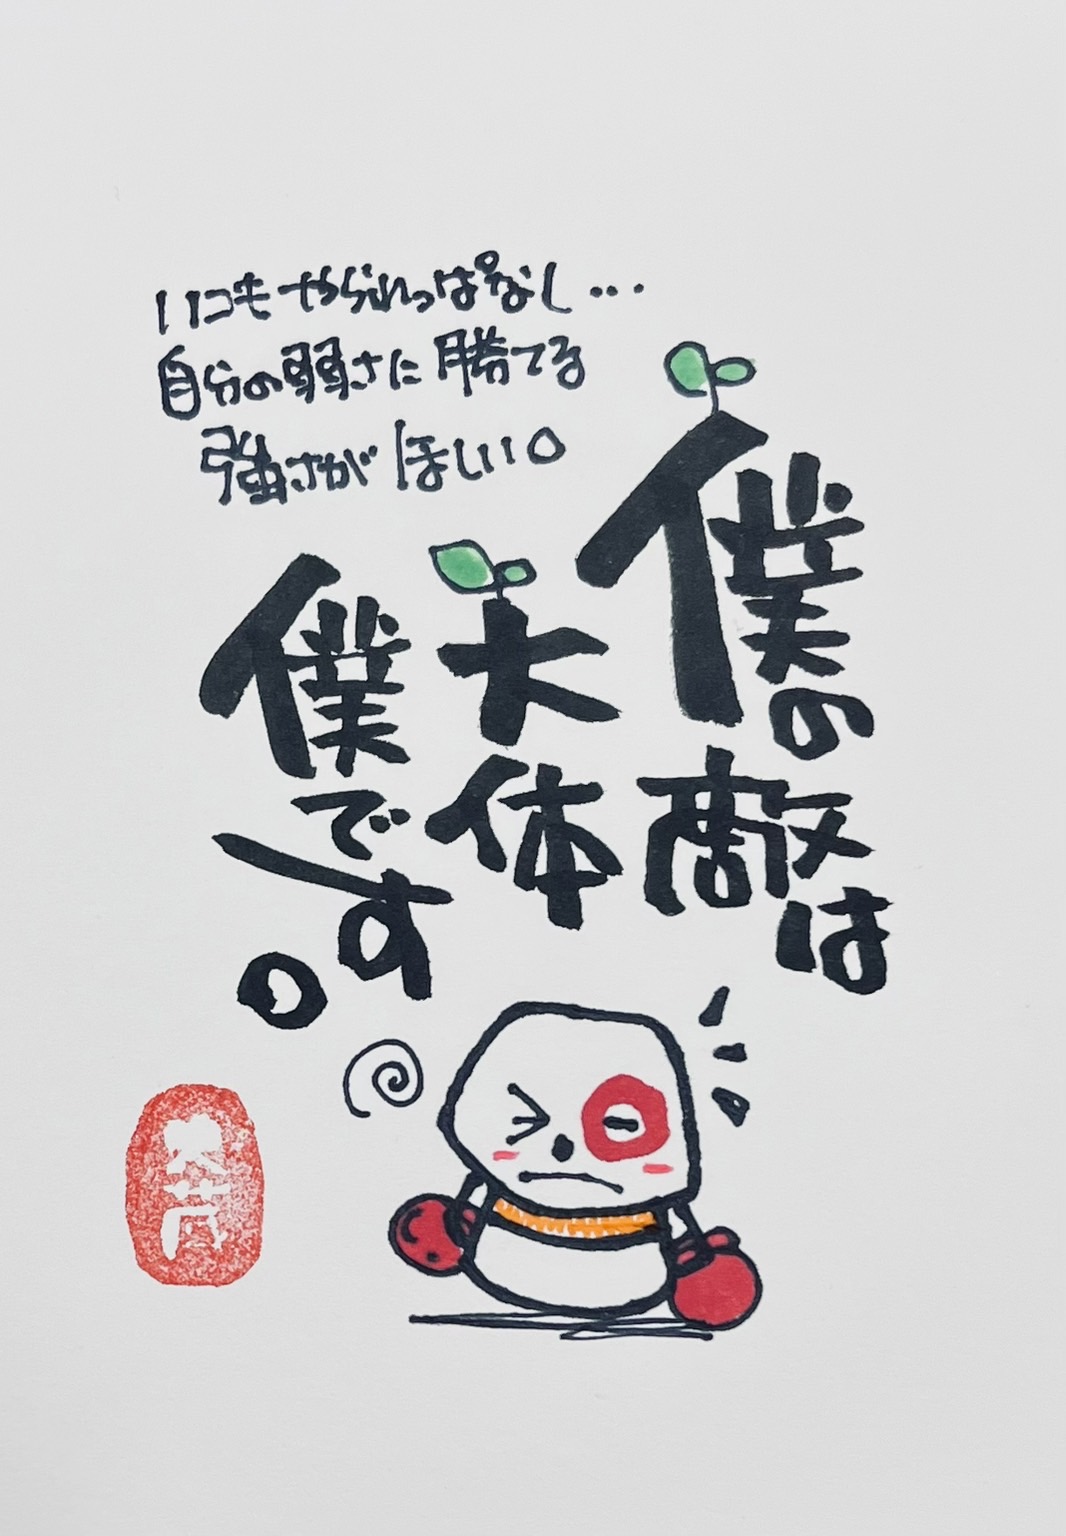 いつもやられっぱなし…
自分の弱さに勝てる
強さがほしい。
僕の敵は
大体
僕です。